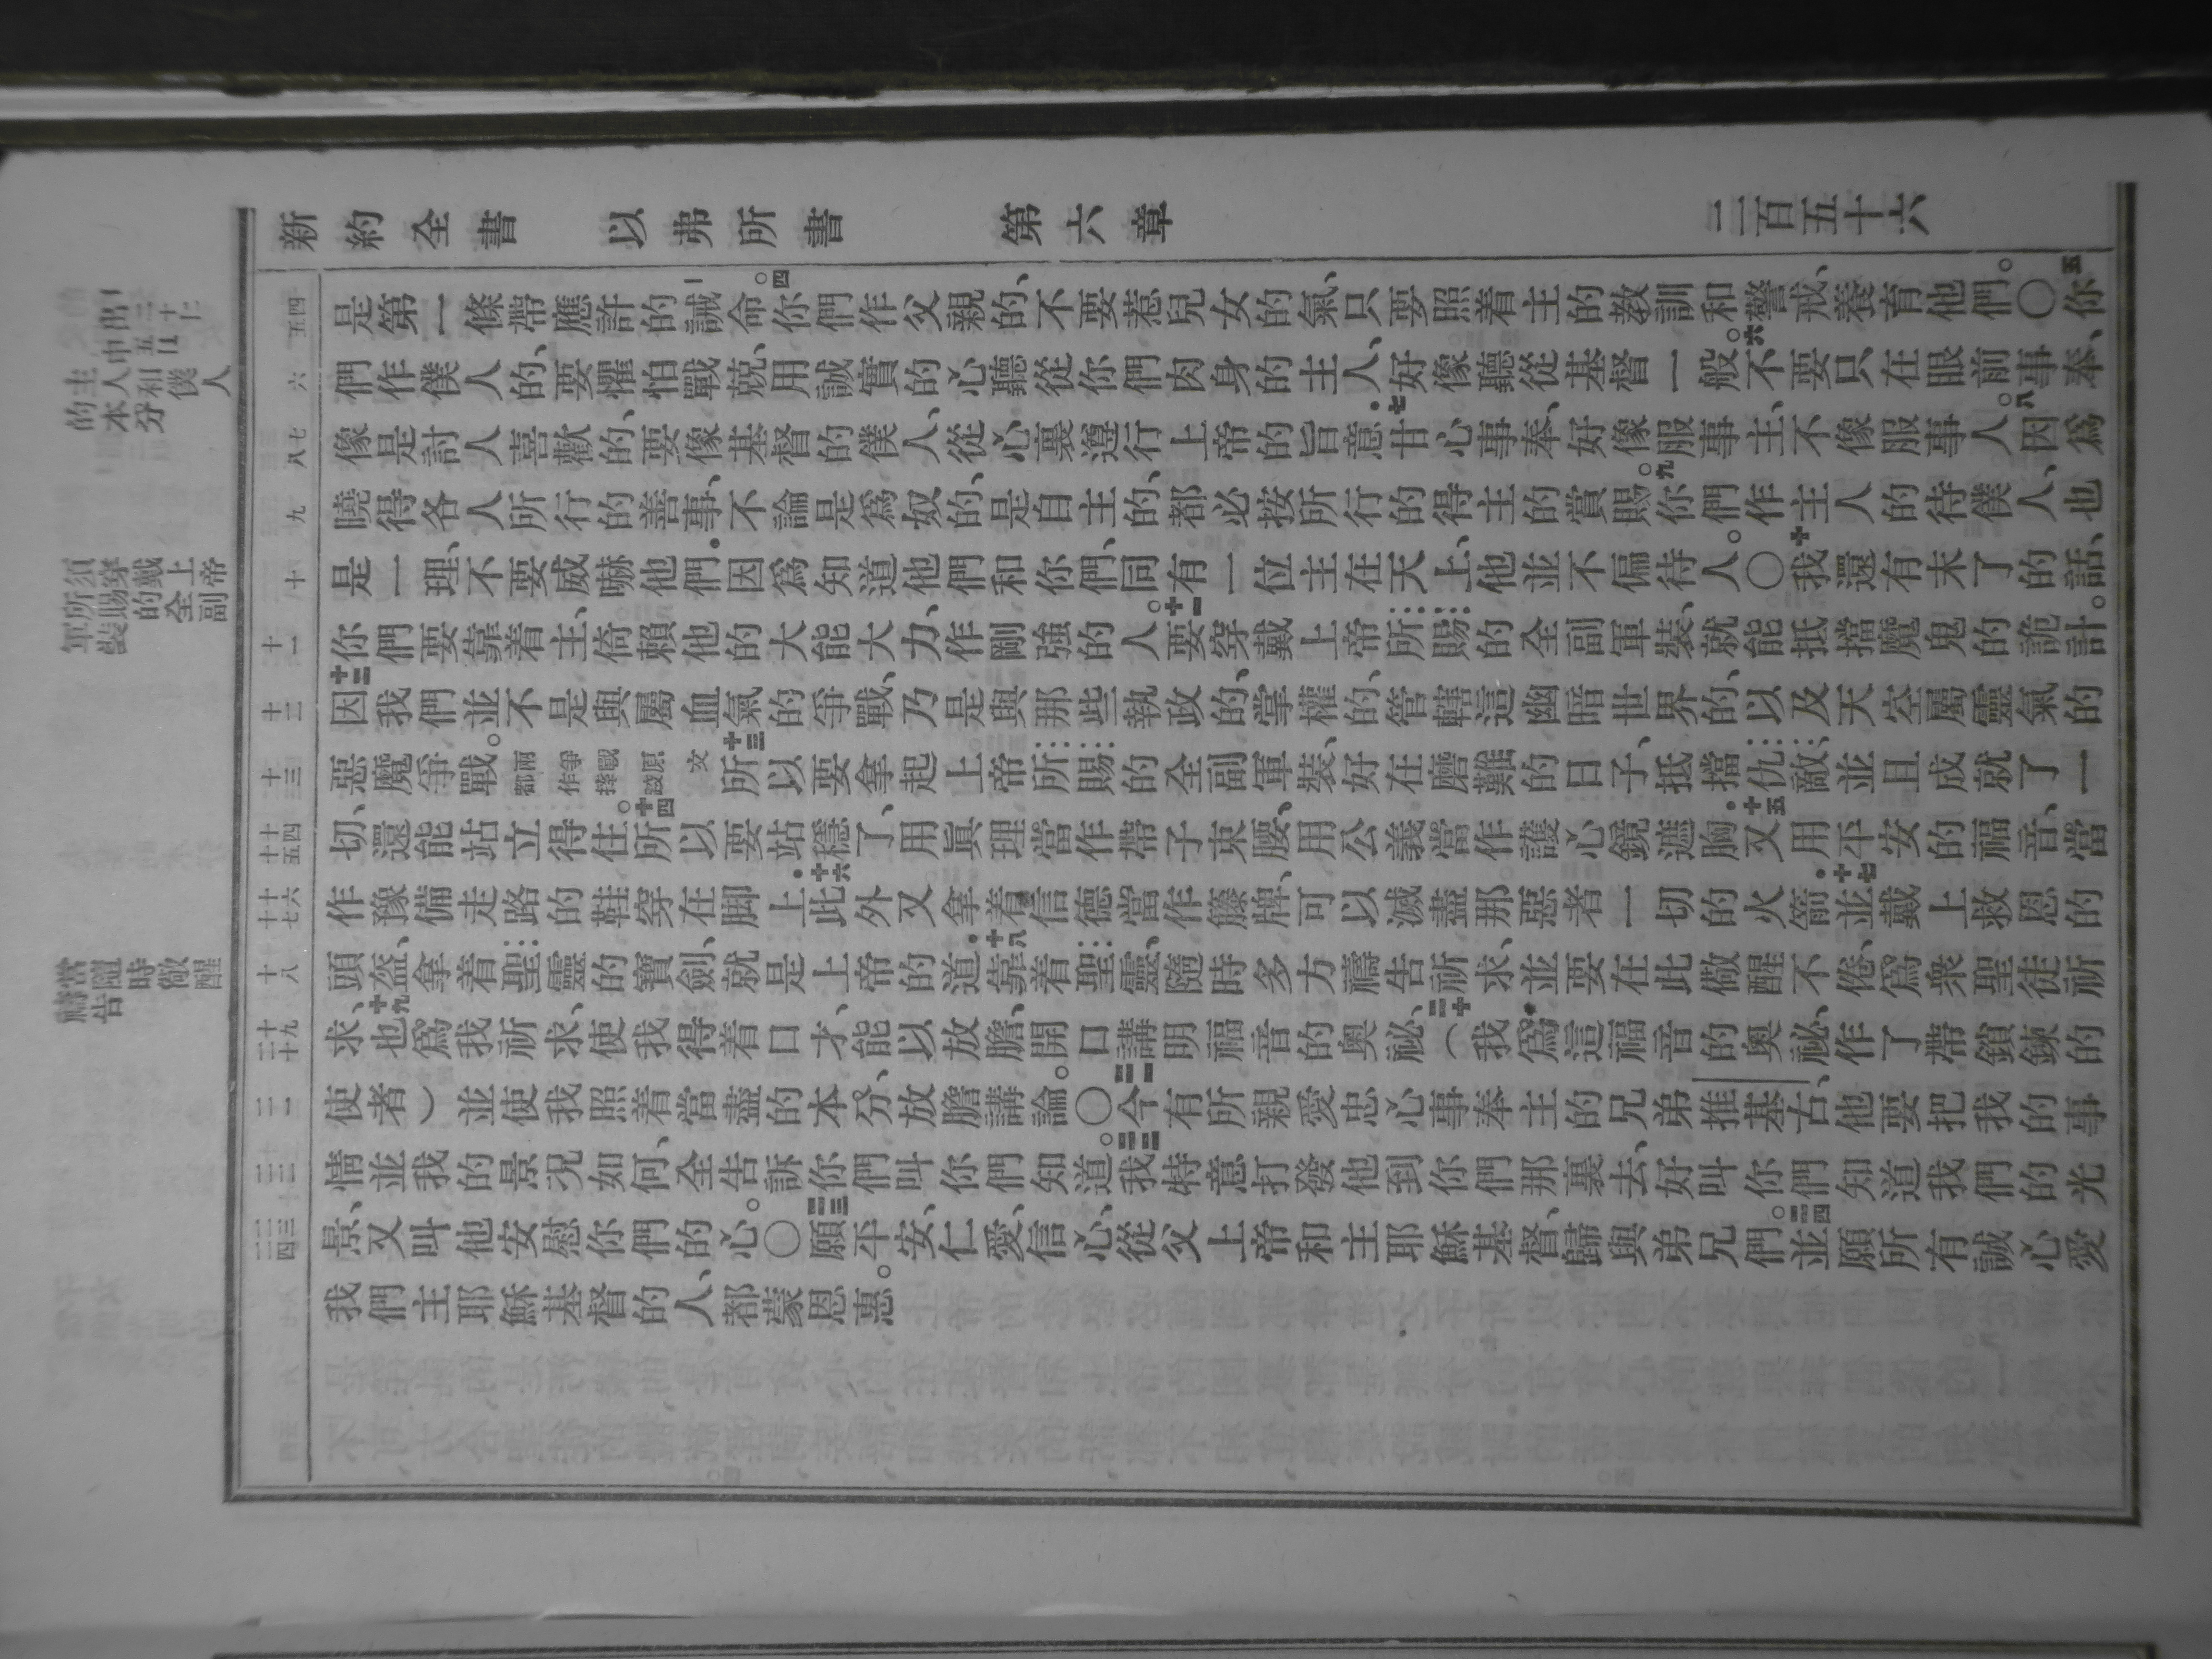 新約全書 以弗所書 第六章 二百五十六
是第一條帶應許的誡命。四你們作父親的、不要惹兒女的氣、只要照着主的教訓和警戒、養育他們。〇五你
們作僕人的、要懼怕戰兢、用誠實的心聽從你們肉身的主人、好像聽從基督一般。六不要只在眼前事奉、
像是討人喜歡的、要像基督的僕人、從心裏遵行上帝的旨意.七甘心事奉、好像服事主、不像服事人。八因爲
曉得各人所行的善事、不論是爲奴的、是自主的、都必按所行的得主的賞賜。九你們作主人的待僕人、也
是一理、不要威嚇他們.因爲知道他們和你們、同有一位主在天上、他並不偏待人。〇十我還有末了的話、
你們要靠着主、倚賴他的大能大力、作剛強的人。十一要穿戴上帝所賜的全副軍裝、就能抵擋魔鬼的詭計。
十二因我們並不是與屬血氣的爭戰、乃是與那些執政的、掌權的、管轄這幽暗世界的、以及天空屬靈氣的
惡魔爭戰。兩都爭作戰摔原跤文十三所以要拿起上帝所賜的全副軍裝、好在磨難的日子、抵擋仇敵、並且成就了一
切、還能站立得住。十四所以要站穩了、用眞理當作帶子束腰、用公義當作護心鏡遮胸.十五又用平安的福音、當
作豫備走路的鞋穿在脚上.十六此外又拿着信德當作籐牌、可以滅盡那惡者一切的火箭.十七並戴上救恩的
頭盔、拿着聖靈的寶劍、就是上帝的道.十八靠着聖靈、隨時多方禱告祈求、並要在此儆醒不倦、爲衆聖徒祈
求、十九也爲我祈求、使我得着口才、能以放膽、開口講明福音的奥祕、二十（我爲這福音的奥祕、作了帶鎖鍊的
使者）並使我照着當盡的本分、放膽講論。〇二一今有所親愛忠心事奉主的兄弟推基古、他要把我的事
情、並我的景況如何、全告訴你們、叫你們知道。二二我特意打發他到你們那裏去、好叫你們知道我們的光
景、又叫他安慰你們的心。〇二三願平安、仁愛、信心、從父上帝和主耶穌基督、歸與弟兄們。二四並願所有誠心愛
我們主耶穌基督的人、都蒙恩惠。
主人和僕人
的本分
須穿戴上帝
所賜的全副
軍裝
當隨時儆醒
禱告